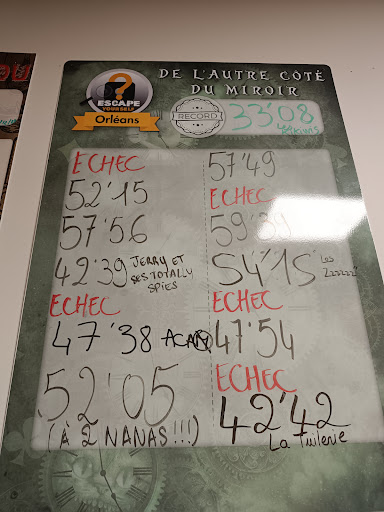 DE L'AUTRE CÔTÉ
DU MIROIR
ESCAPE
YOURSELF
Orléans
RECORD
33'08
ECHEC
52'15
57'56
42'39 JERRY ET
SES TOTALLY
SPIES
ECHEC
47'38
52'05
(À 2 NANAS!!!)
57'49
ECHEC
59'39
54'15 Les
Zzzzzz
ECHEC
47'54
ECHEC
42'42
La Tuilerie